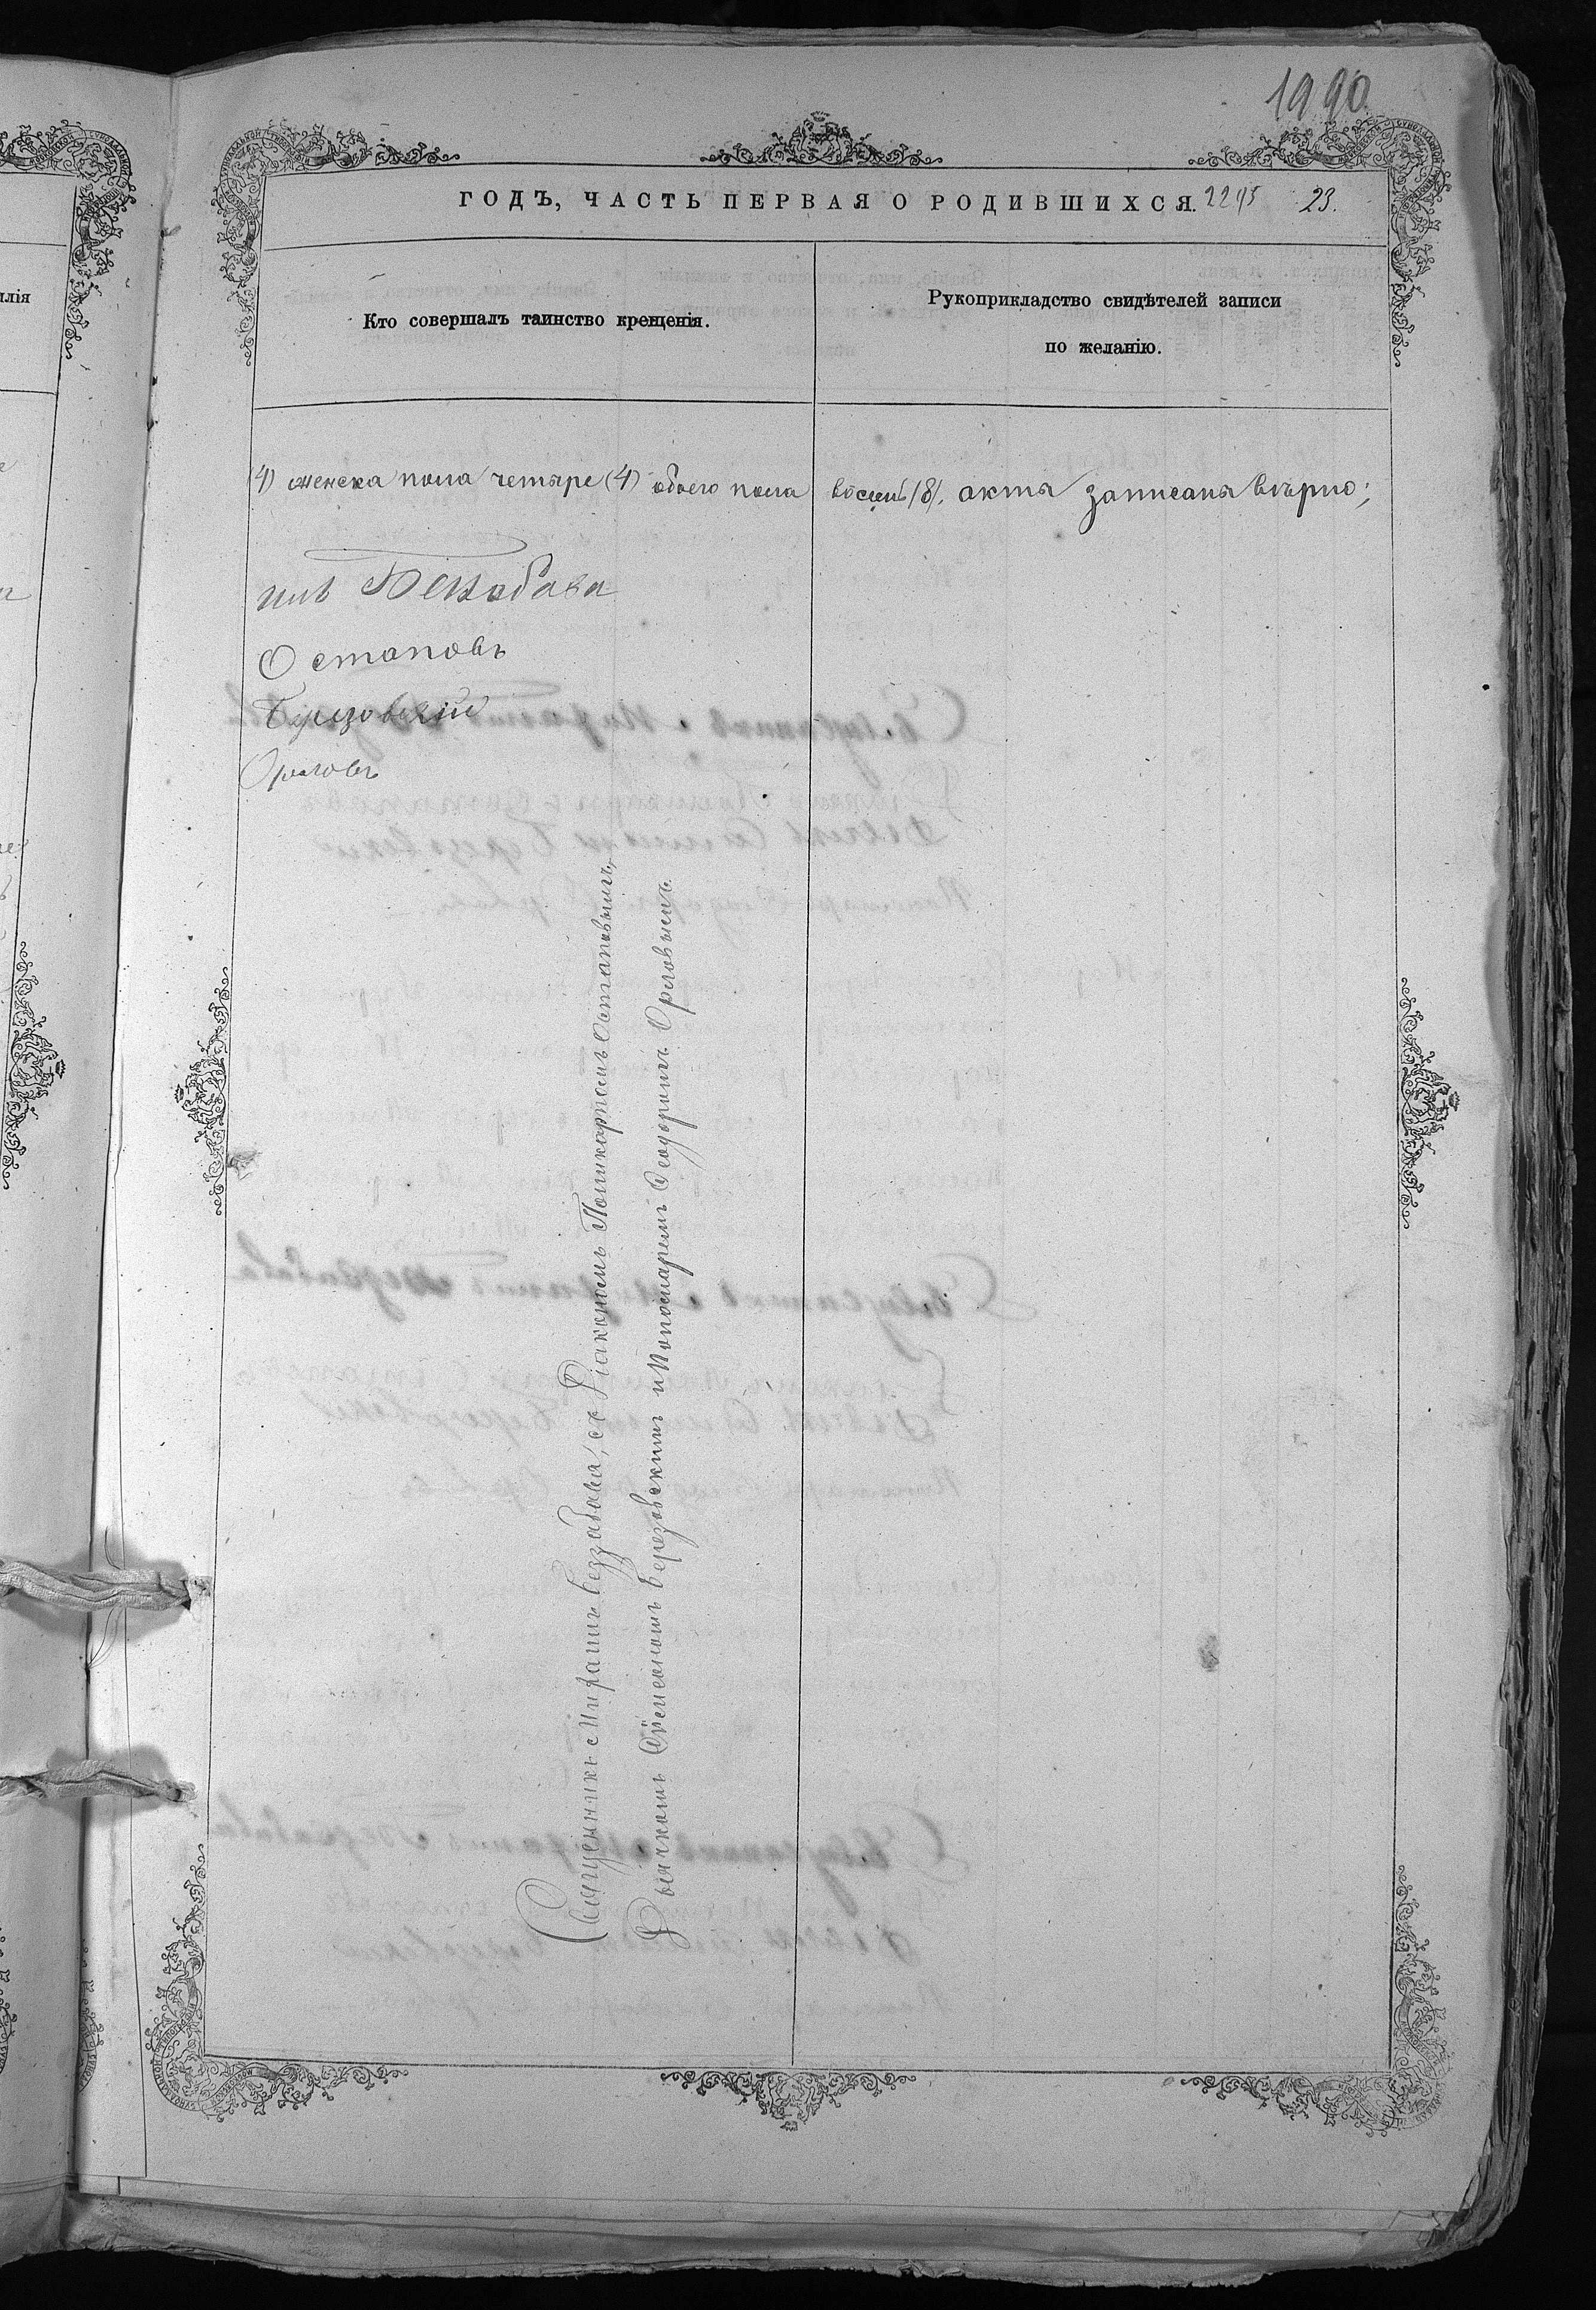 1990
ГОДЪ, ЧАСТЬ ПЕРВАЯ О РОДИВШИХСЯ. 2295 23.
лія
Кто совершалъ таинство крещенія.
Рукоприкладство свидѣтелей записи
по желанію.
(4) женска пола четыре (4) обоего пола восемь (8). акты записаны вѣрно;
Беззабава
Остаповъ
Березовскій
Орловъ
Священникъ Беззабава, съ Діакономъ Поликарпомъ Остаповымъ,
Дьячкомъ Симеономъ Березовскимъ и Пономаремъ Ѳеодоромъ Орловымъ.